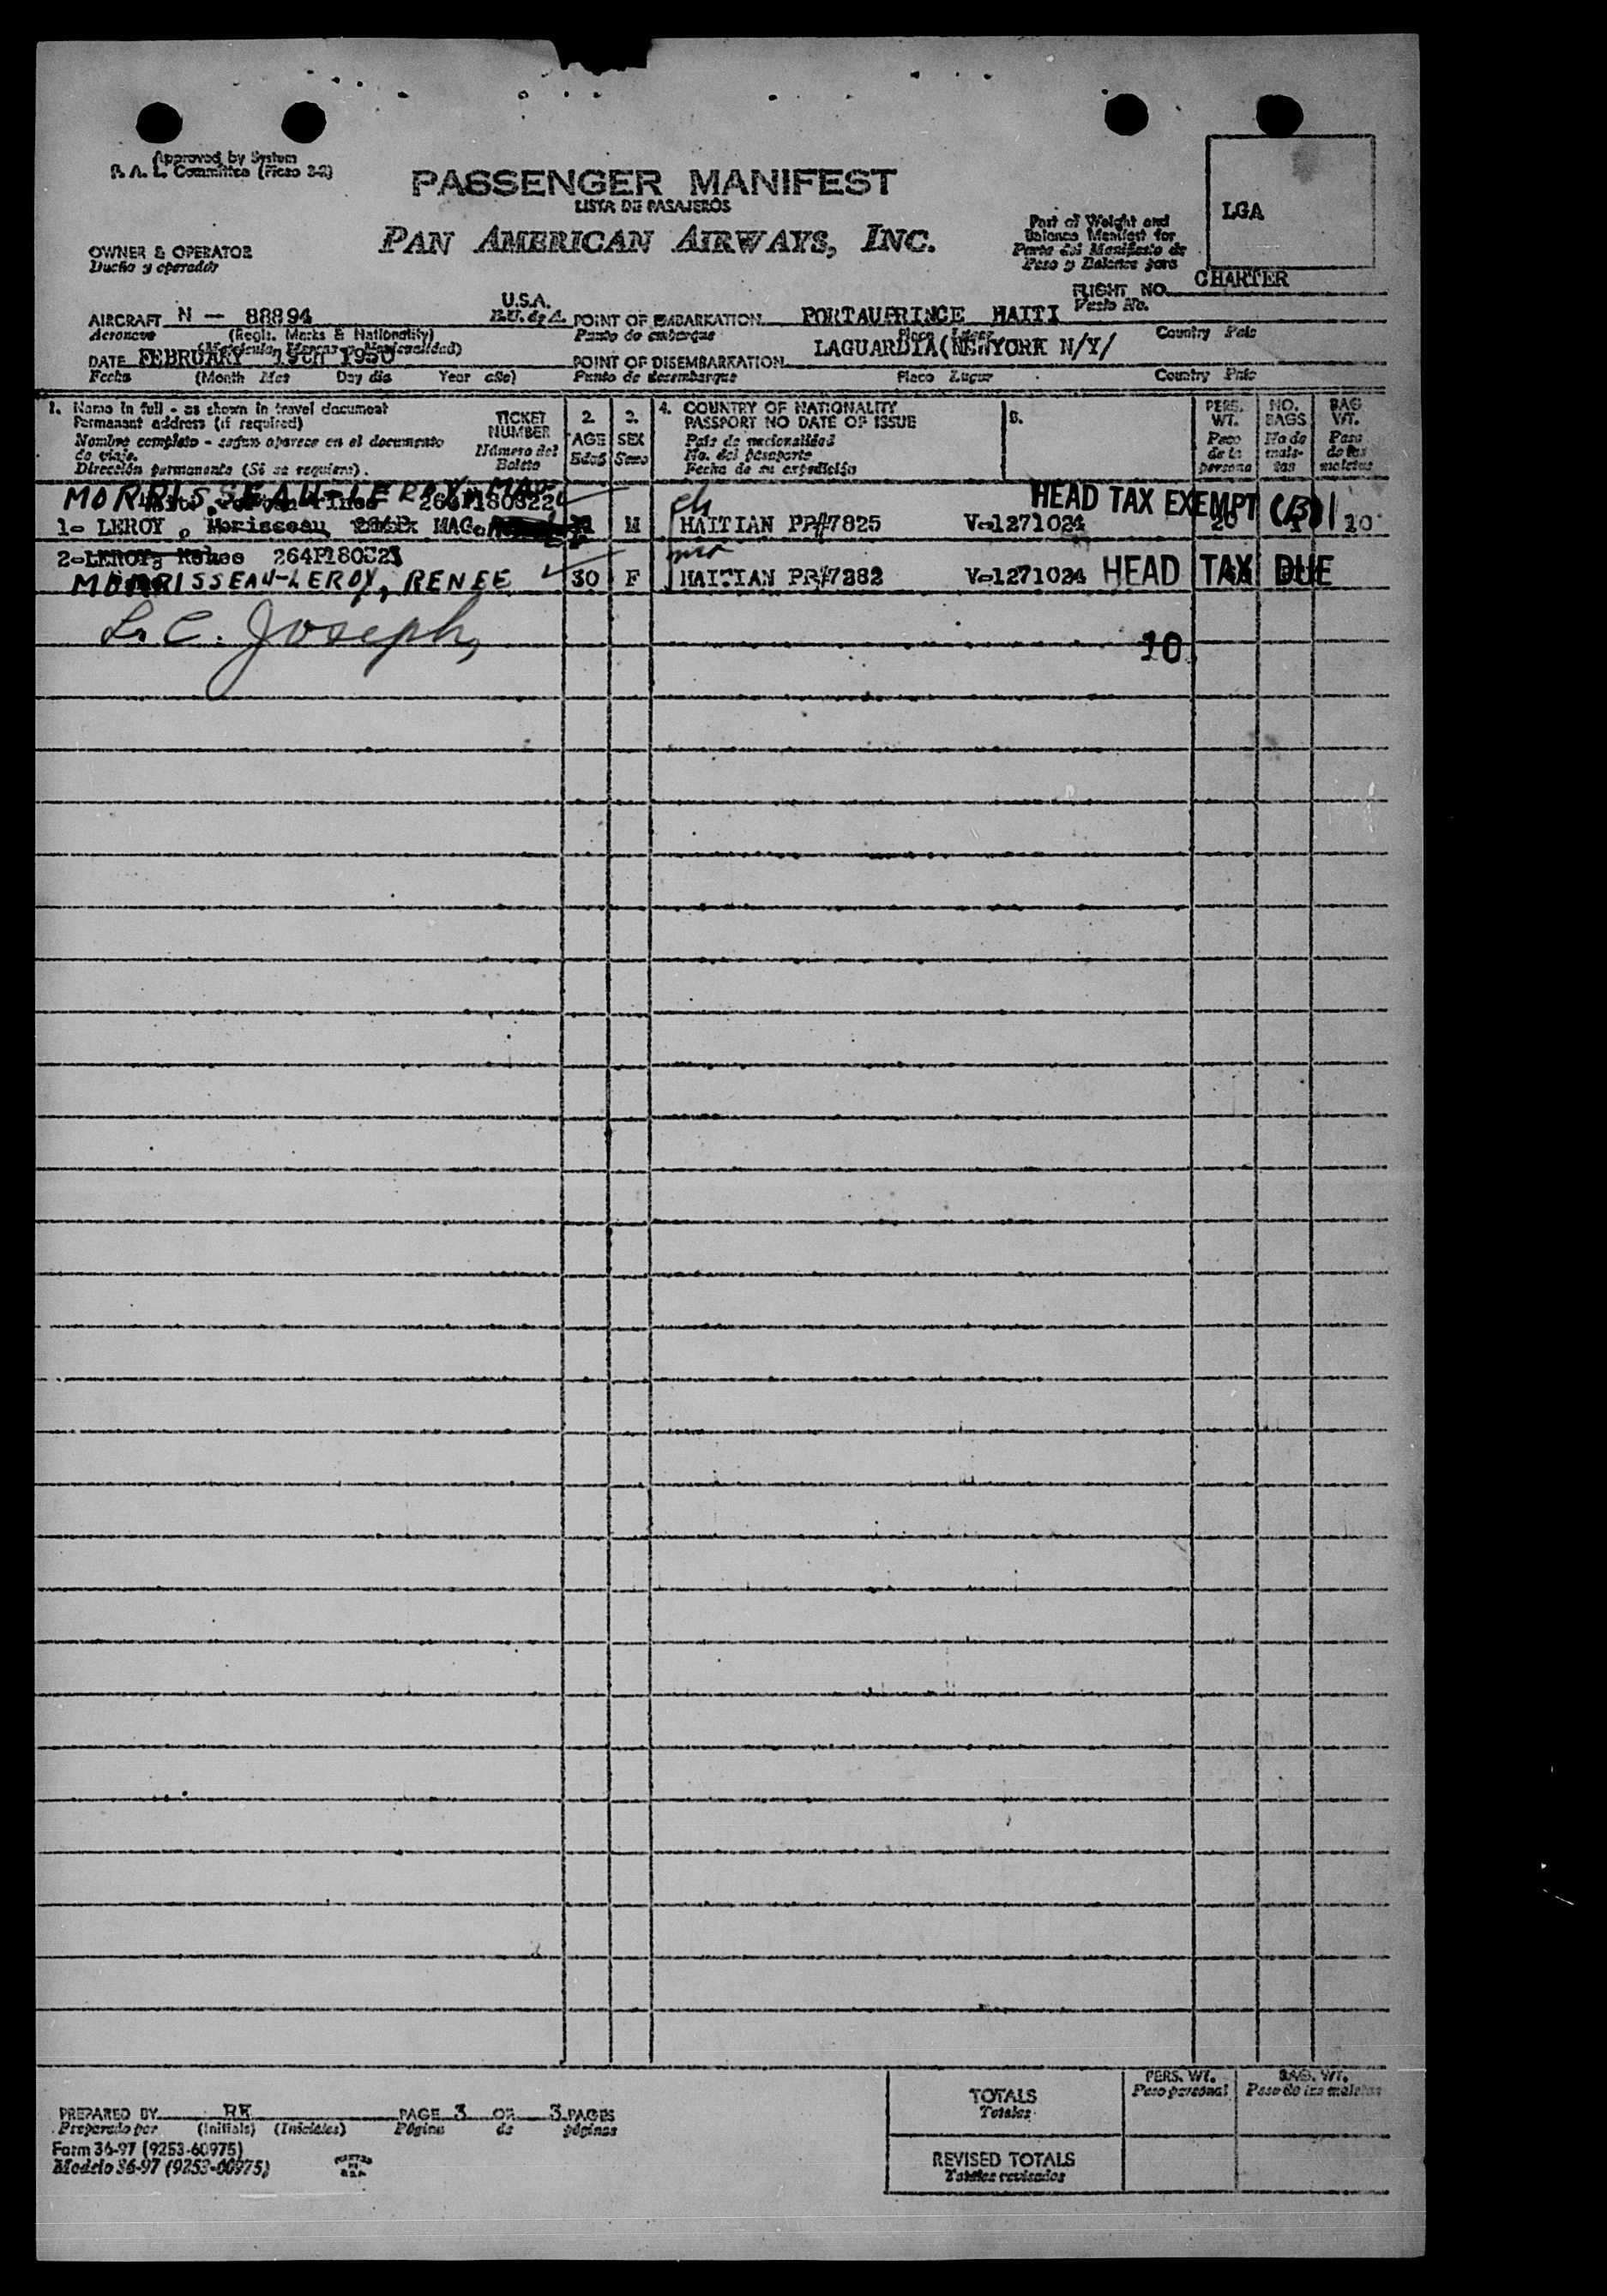 Approved by System
P. A. L. Committee (Ficao 3-2)
PASSENGER MANIFEST
LISTA DE PASAJEROS
PAN AMERICAN AIRWAYS, INC.
LGA
Part of Weight and
Balance Manifest for
Parte del Manifiesto de
Peso y Balance para
OWNER & OPERATOR
Dueño y operador
FLIGHT NO. CHARTER
Vuelo No.
AIRCRAFT N - 88894 U.S.A. POINT OF EMBARKATION PORTAUPRINCE HAITI
Aeronave (Regis. Marks & Nationality) E.U. de A. Punto de embarque Place Lugar Country País
(Matrícula, Marcas y Nacionalidad)
DATE FEBRUARY 19th 1950 POINT OF DISEMBARKATION LAGUARDIA(NEWYORK N/Y/
Fecha (Month Mes Day día Year año) Punto de desembarque Place Lugar Country País
1. Name in full - as shown in travel document
Permanent address (if required)
Nombre completo - según aparece en el documento
de viaje.
Dirección permanente (Si se requiere).
TICKET
NUMBER
Número del
Boleto
2.
AGE
Edad
3.
SEX
Sexo
4. COUNTRY OF NATIONALITY
PASSPORT NO DATE OF ISSUE
País de nacionalidad
No. del pasaporte
Fecha de su expedición
5.
PERS.
WT.
Peso
de la
persona
NO.
BAGS
No de
male-
tas
BAG
WT.
Peso
de las
maletas
MORRISSEAU-LEROY, MAG. 264P180822 HEAD TAX EXEMPT (B)
1- LEROY, Morisseau MAG. M HAITIAN PP#7825 V-1271024 10
2-LEROY, Renee 264P180821
MORRISSEAU-LEROY, RENEE 30 F HAITIAN PP#7282 V-1271024 HEAD TAX DUE
L. C. Joseph,
10
TOTALS
Totales
PERS. WT.
Peso personal
BAG. WT.
Peso de las maletas
PREPARED BY RK PAGE 3 OR 3 PAGES
Preparado por (Initials) (Iniciales) Página de páginas
REVISED TOTALS
Totales revisados
Form 36-97 (9253-60975)
Modelo 36-97 (9253-60975)